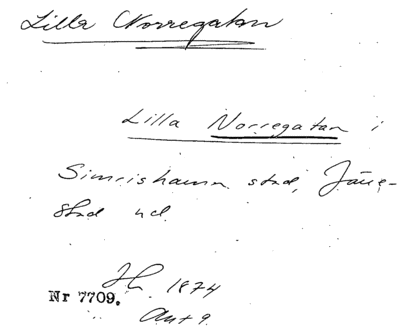 Lilla Norregatan
Lilla Norregatan i
Simrishamn stad, Järre-
stad hd
Jh. 1874
Nr 7709.
Akt 9